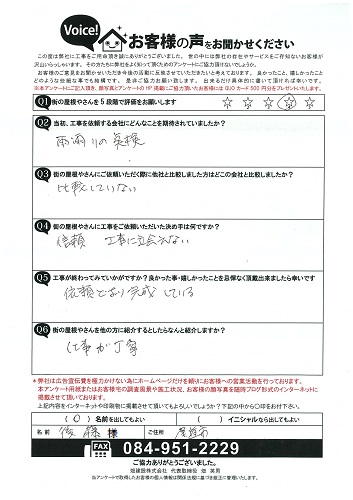 Voice!
お客様の声をお聞かせください
この度は弊社に工事をご用命頂き誠にありがとうございました。世の中には弊社の存在やサービスをご存知ないお客様が
沢山いらっしゃいます。その方たちに弊社をよく知って頂くためのアンケートにご協力頂けないでしょうか。
お客様のご意見をお聞かせいただき今後の活動に反映させていただきたいと考えております。良かったこと、嬉しかったこと
どのような些細な事でも結構です。是非ご協力お願い致します。出来るだけ具体的に書いて頂ければ幸いです。
※本アンケートにご記入頂き、顔写真とアンケートのHP掲載にご協力頂いたお客様にはQUOカード500円分をプレゼントいたします。
Q1 街の屋根やさんを5段階で評価をお願いします ☆ ☆ ☆ ☆ ☆
Q2 当初、工事を依頼する会社にどんなことを期待されていましたか?
雨漏りの
Q3 街の屋根やさんにご依頼いただく際に他社と比較しました方はどこの会社と比較しましたか?
比較していない
Q4 街の屋根やさんに工事をご依頼いただいた決め手は何ですか?
信頼 工事に立会えない
Q5 工事が終わってみていかがですか?良かった事・嬉しかったことを忌憚なく頂戴出来ましたら幸いです
依頼どおり完成している
Q6 街の屋根やさんを他の方に紹介するとしたらなんと紹介しますか?
仕事が丁寧
※弊社は広告宣伝費を極力かけない為にホームページだけを頼りにお客様への営業活動を行っております。
本アンケート用紙またはお客様宅の調査風景や施工状況、お客様の顔写真を随時ブログ形式のインターネットに
掲載させて頂いております。
上記内容をインターネットや印刷物に掲載させて頂いてもよろしいでしょうか?下記の中から〇印をお付け下さい。
(〇)名前を出してもよい ( )イニシャルなら出してもよい
名前 後藤 様 ご住所 尾道市
FAX 084-951-2229
ご協力ありがとうございました。
畑建設株式会社 代表取締役 畑 英男
当アンケートで取得したお客様の個人情報は関係法規に基づき厳正に管理いたします。